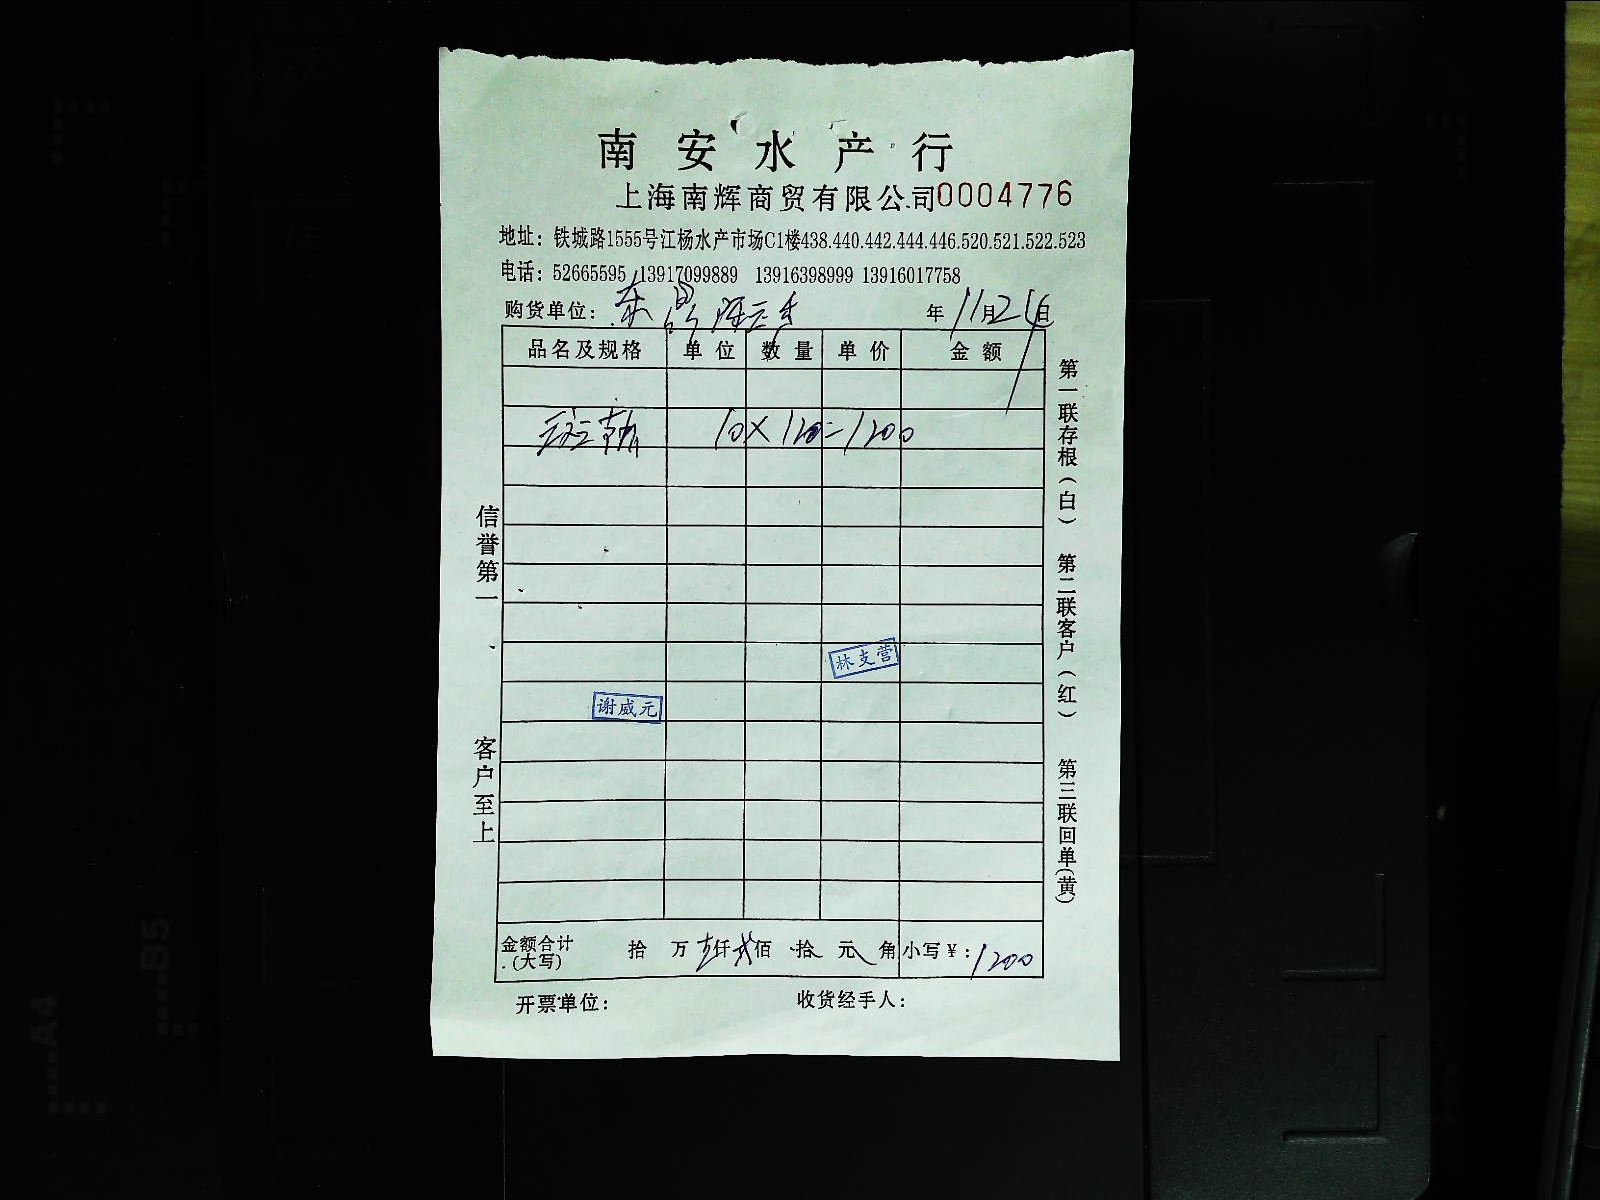 南安水产行
上海南辉商贸有限公司0004776
地址：铁城路1555号江杨水产市场C1楼438.440.442.444.446.520.521.522.523
电话：52665595 13917099889 13916398999 13916017758
购货单位：东 年11月2 日
品名及规格 单位 数量 单价 金额
10×120=1200
林支营
谢威元
金额合计(大写) 拾 万壹仟贰佰 拾 元 角 小写￥:1200
开票单位： 收货经手人：
信誉第一、客户至上
第一联存根（白） 第二联客户（红） 第三联回单(黄)